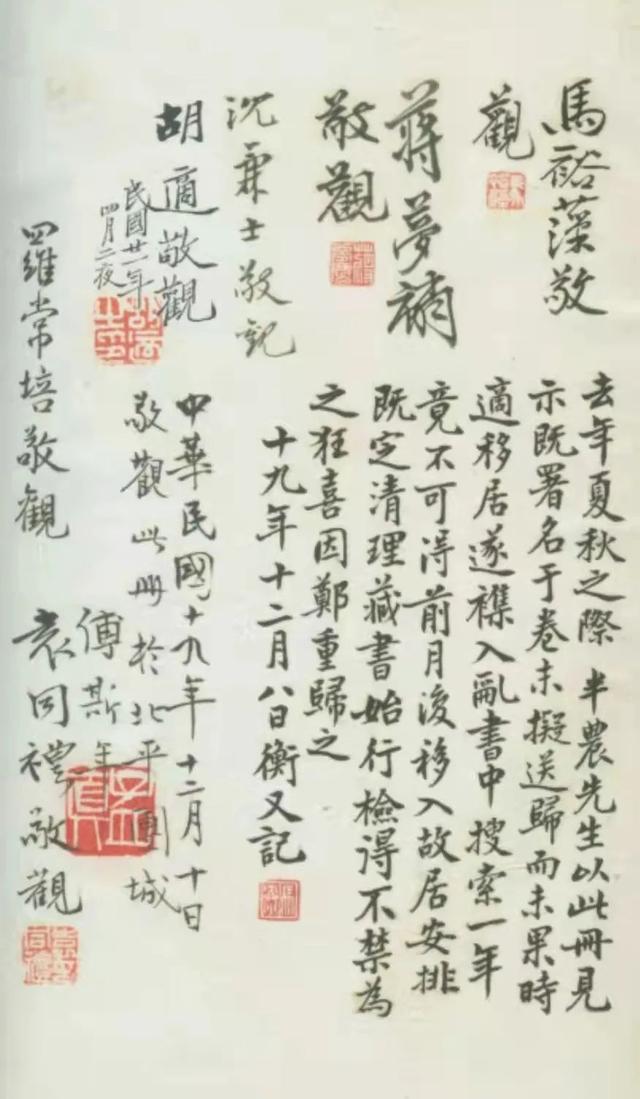 馬裕藻敬
觀
蔣夢麟
敬觀
沈兼士敬觀
胡適敬觀
民國廿一年
四月二夜
羅常培敬觀
去年夏秋之際半農先生以此冊見
示既署名于卷末擬送歸而未果時
適移居遂襍入亂書中搜索一年
竟不可得前月復移入故居安排
既定清理藏書始行檢得不禁為
之狂喜因鄭重歸之
十九年十二月八日衡又記
中華民國十九年十二月十日
敬觀此冊於北平團城
傅斯年
袁同禮敬觀